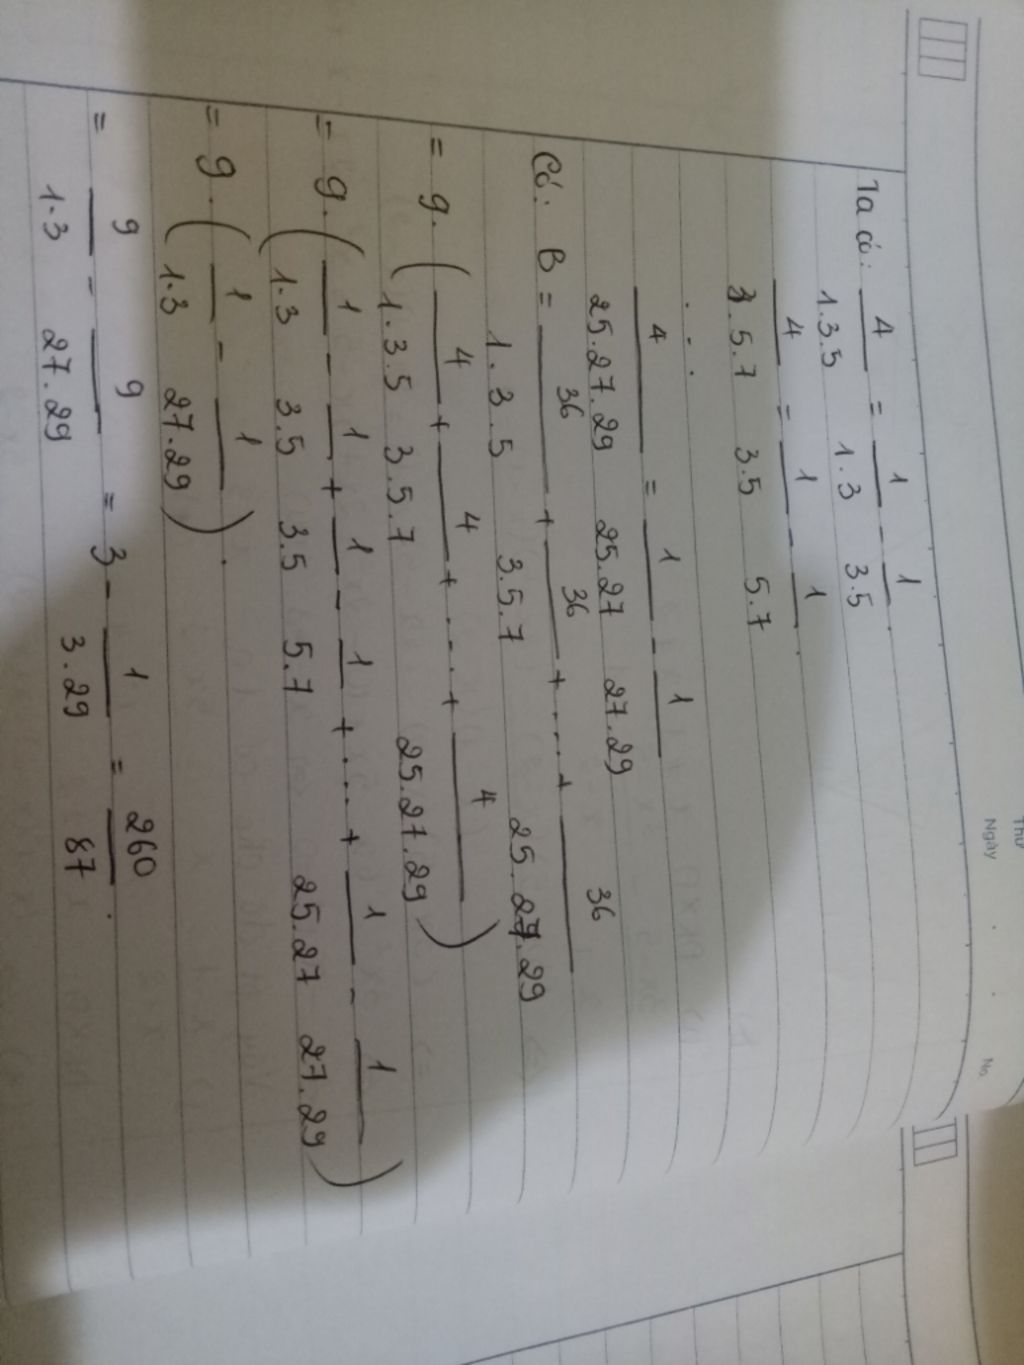 Thứ
Ngày . . No.
Ta có: 4/1.3.5 = 1/1.3 - 1/3.5.
4/3.5.7 = 1/3.5 - 1/5.7.
. . .
4/25.27.29 = 1/25.27 - 1/27.29
Có: B = 36/1.3.5 + 36/3.5.7 + ... + 36/25.27.29
= 9.(4/1.3.5 + 4/3.5.7 + ... + 4/25.27.29)
= 9.(1/1.3 - 1/3.5 + 1/3.5 - 1/5.7 + ... + 1/25.27 - 1/27.29)
= 9.(1/1.3 - 1/27.29).
= 9/1.3 - 9/27.29 = 3 - 1/3.29 = 260/87.